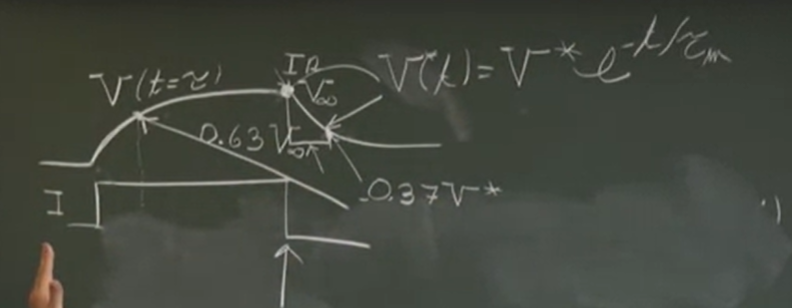 IR
V(t=τ)
V∞
V(t) = V* e^{-t/τm}
0.63 V∞
0.37V*
I